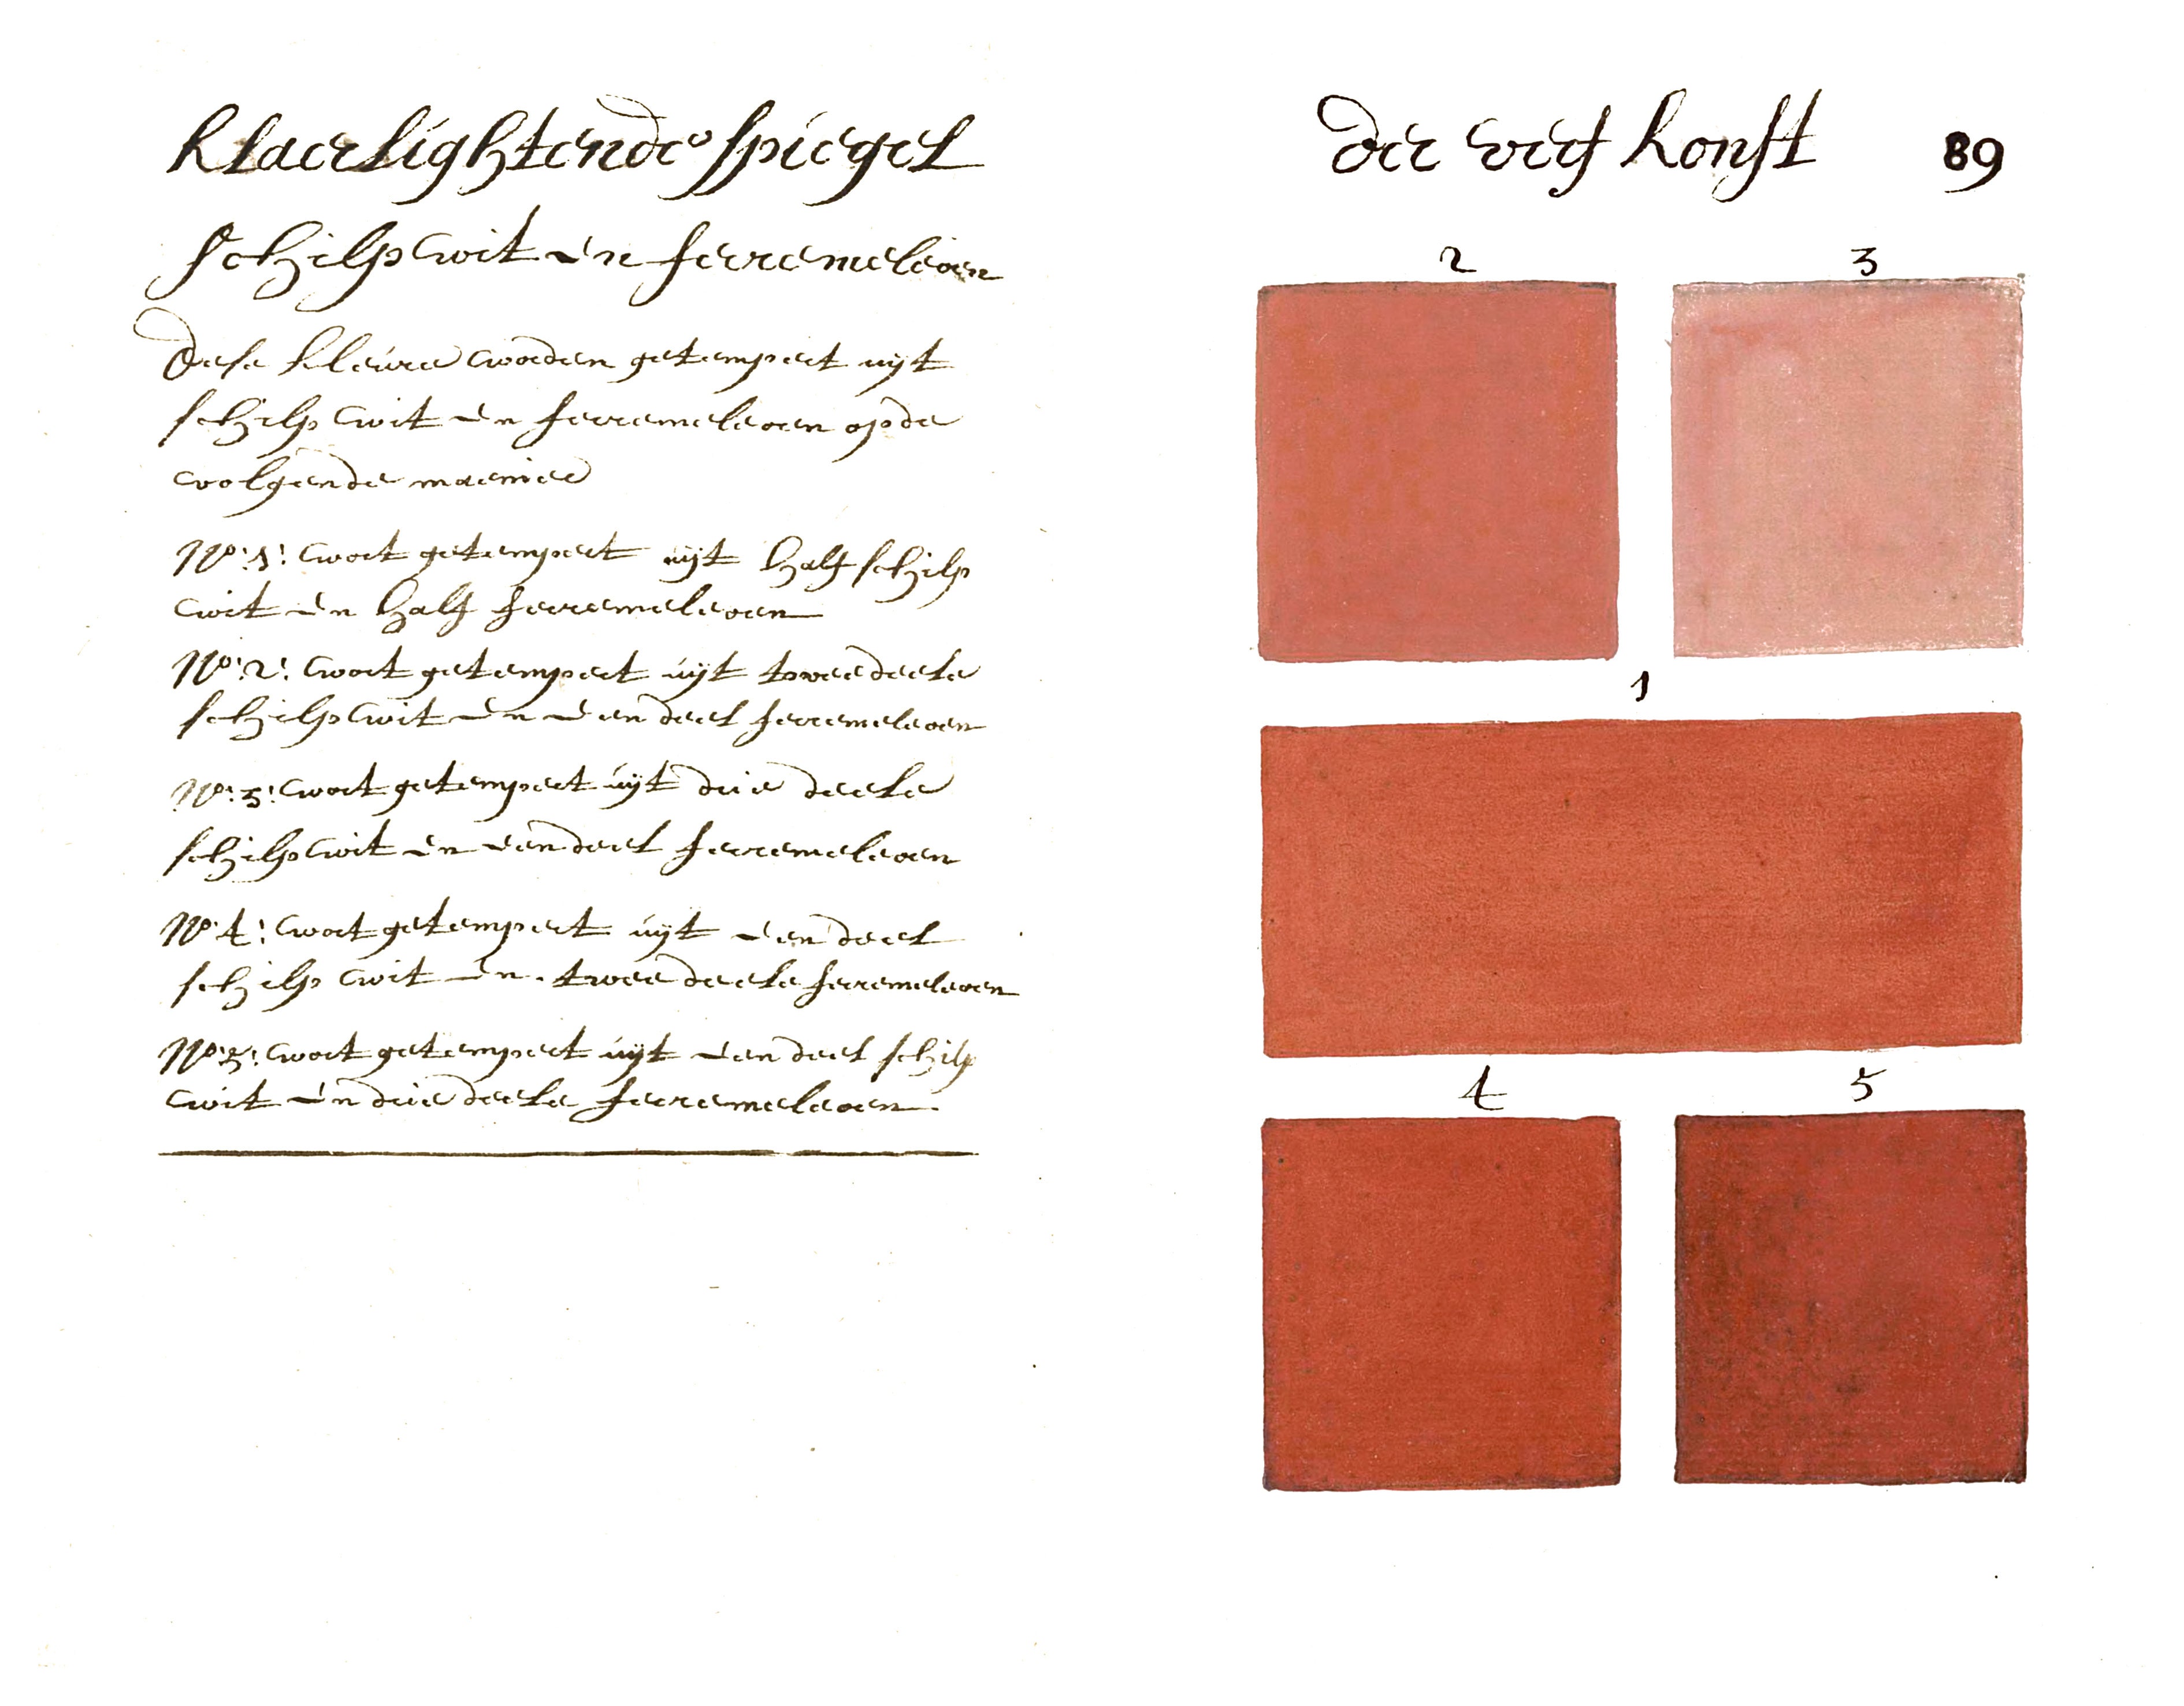 klaerlightende spiegel
schilp wit en ferremeleoen
Dese kleure worden getempert uijt
schilp wit en ferremeleoen op de
volgende maenier
No: 1: wort getempert uijt half schilp
wit en half ferremeleoen
No: 2: wort getempert uijt twee deele
schilp wit en een deel ferremeleoen
No: 3: wort getempert uijt drie deele
schilp wit en een deel ferremeleoen
No: 4: wort getempert uijt een deel
schilp wit en twee deele ferremeleoen
No: 5: wort getempert uijt een deel schilp
wit en drie deele ferremeleoen
der verf konst 89
2 3
1
4 5